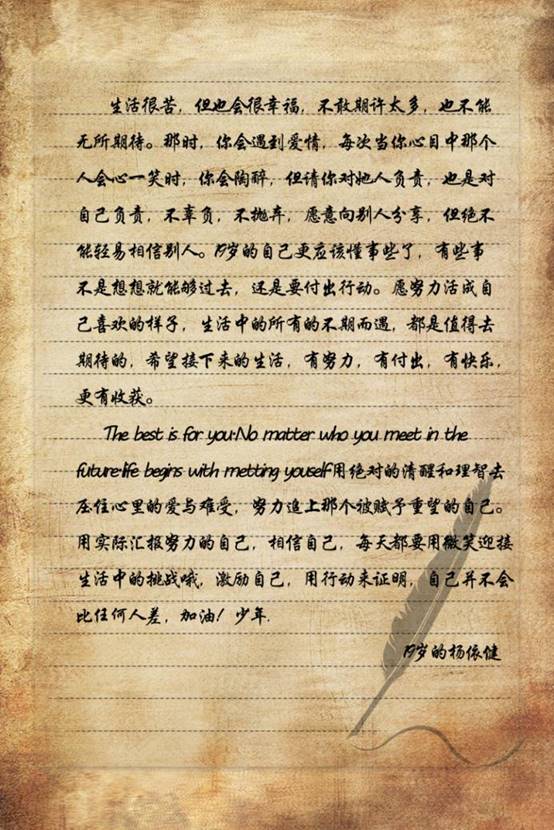 生活很苦，但也会很幸福，不敢期许太多，也不能
无所期待。那时，你会遇到爱情，每次当你心目中那个
人会心一笑时，你会陶醉，但请你对她人负责，也是对
自己负责，不辜负，不抛弃，愿意向别人分享，但绝不
能轻易相信别人。19岁的自己更应该懂事些了，有些事
不是想想就能够过去，还是要付出行动。愿努力活成自
己喜欢的样子，生活中的所有的不期而遇，都是值得去
期待的，希望接下来的生活，有努力，有付出，有快乐，
更有收获。
The best is for you·No matter who you meet in the
future·life begins with metting youself用绝对的清醒和理智去
压住心里的爱与难受，努力追上那个被赋予重望的自己。
用实际汇报努力的自己，相信自己，每天都要用微笑迎接
生活中的挑战哦，激励自己，用行动来证明，自己并不会
比任何人差，加油！少年.
19岁的杨依健